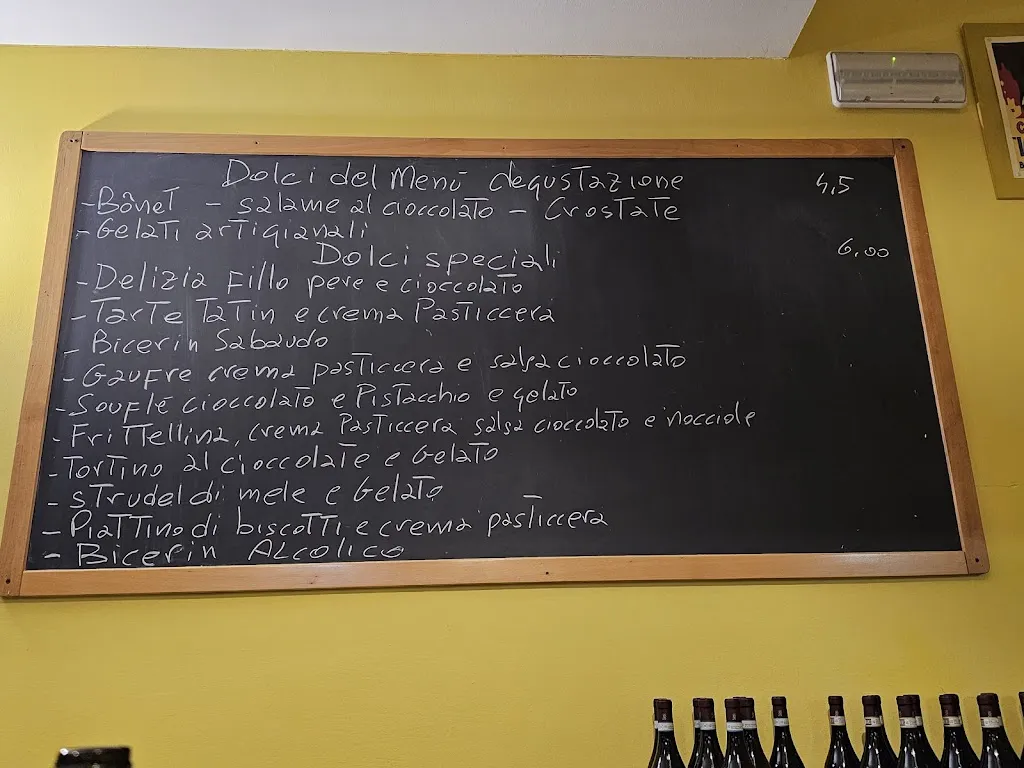 Dolci del Menù degustazione 4,5
- Bônet - salame al cioccolato - Crostate
- Gelati artigianali
Dolci speciali 6,00
- Delizia Fillo pere e cioccolato
- Tarte Tatin e crema Pasticcera
- Bicerin Sabaudo
- Gaufre crema pasticcera e salsa cioccolato
- Souflé cioccolato e Pistacchio e gelato
- Frittellina, crema Pasticcera salsa cioccolato e nocciole
- Tortino al cioccolate e Gelato
- strudel di mele e Gelato
- Piattino di biscotti e crema pasticcera
- Bicerin Alcolico